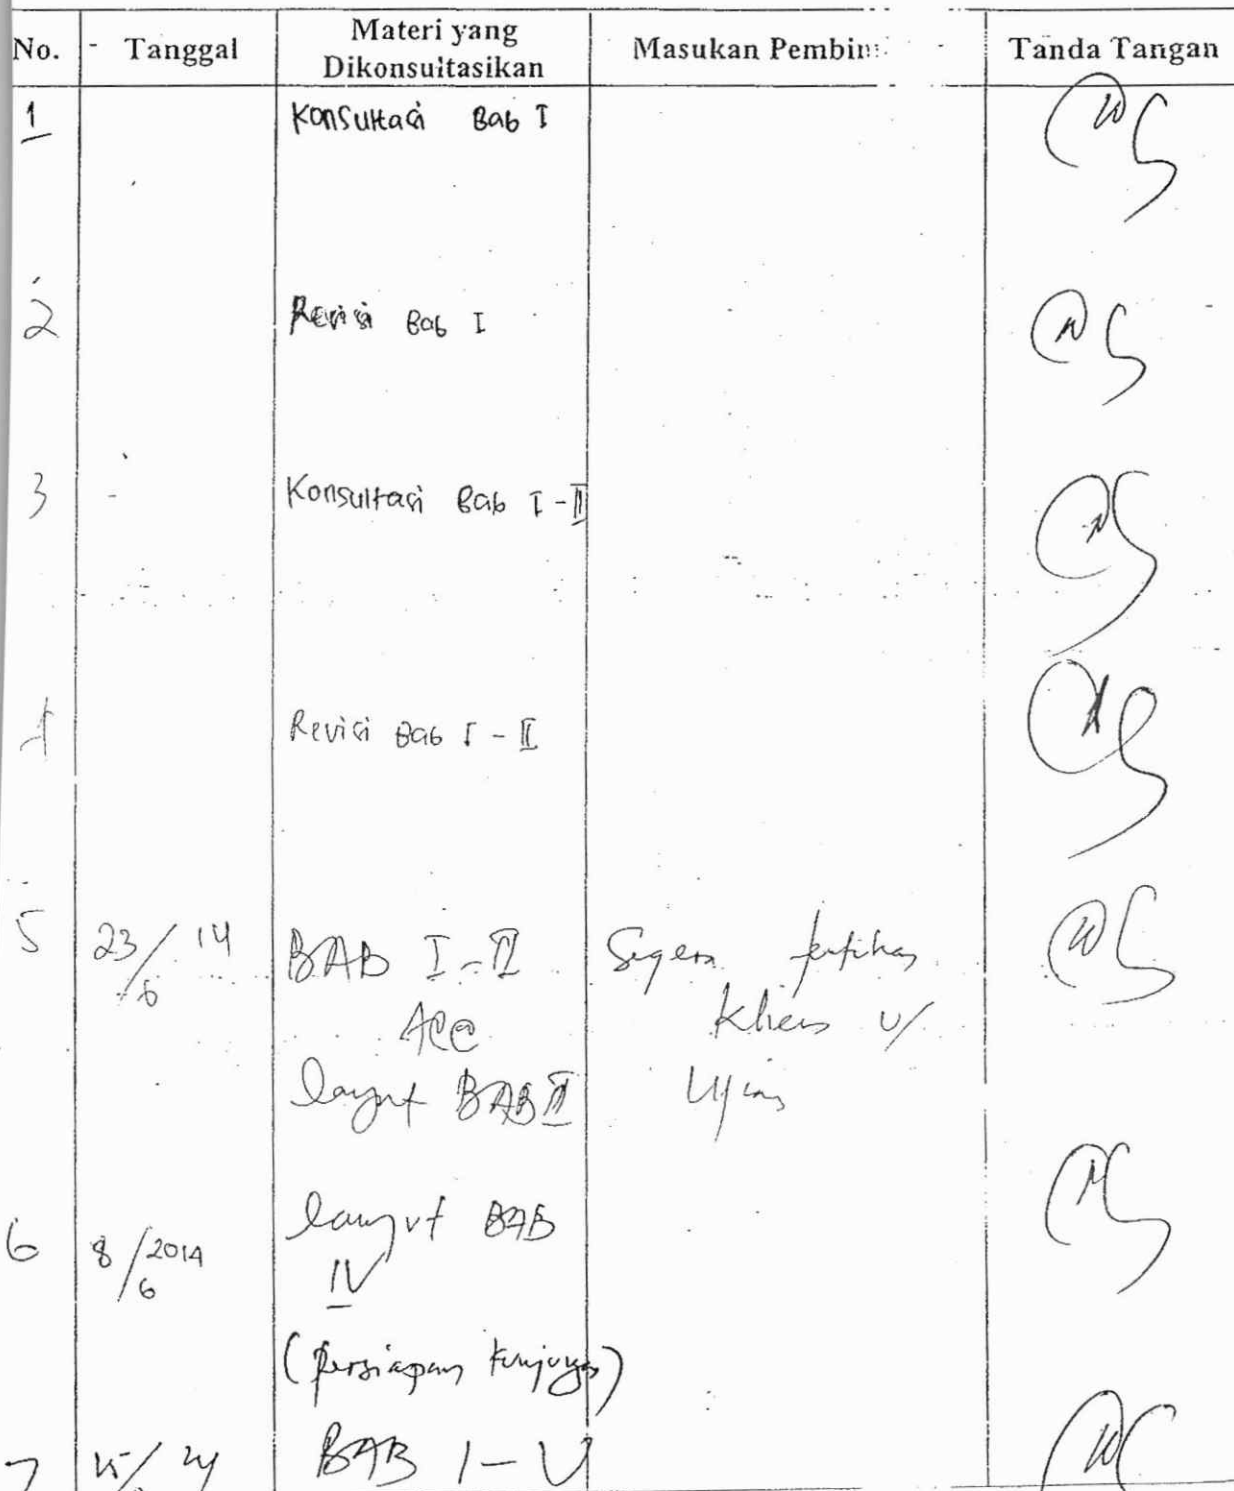 No. Tanggal Materi yang Dikonsultasikan Masukan Pembim Tanda Tangan
1 Konsultasi Bab I
2 Revisi Bab I
3 - Konsultasi Bab I - II
4 Revisi Bab I - II
5 23/6 14 BAB I - II Segera
ACC Klien u/
lanjut BAB III Ujian
6 8/6 2014 lanjut BAB
IV
(persiapan kunjungan)
7 BAB I - V